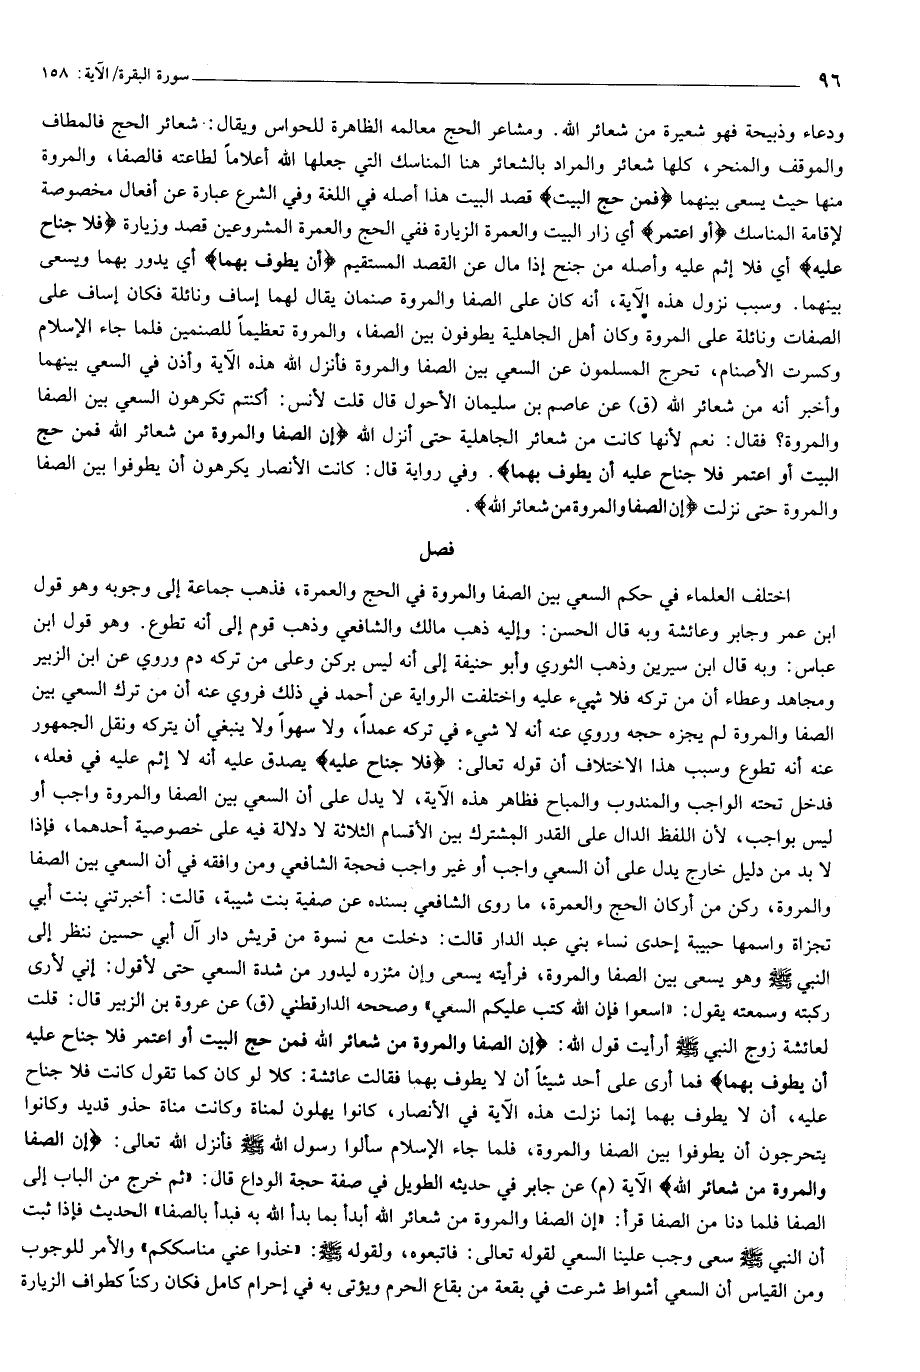 ٩٦ سورة البقرة/ الآية: ١٥٨
ودعاء وذبيحة فهو شعيرة من شعائر الله. ومشاعر الحج معالمه الظاهرة للحواس ويقال: شعائر الحج فالمطاف
والموقف والمنحر، كلها شعائر والمراد بالشعائر هنا المناسك التي جعلها الله أعلاماً لطاعته فالصفا، والمروة
منها حيث يسعى بينهما ﴿فمن حج البيت﴾ قصد البيت هذا أصله في اللغة وفي الشرع عبارة عن أفعال مخصوصة
لإقامة المناسك ﴿أو اعتمر﴾ أي زار البيت والعمرة الزيارة ففي الحج والعمرة المشروعين قصد وزيارة ﴿فلا جناح
عليه﴾ أي فلا إثم عليه وأصله من جنح إذا مال عن القصد المستقيم ﴿أن يطوف بهما﴾ أي يدور بهما ويسعى
بينهما. وسبب نزول هذه الآية، أنه كان على الصفا والمروة صنمان يقال لهما إساف ونائلة فكان إساف على
الصفات ونائلة على المروة وكان أهل الجاهلية يطوفون بين الصفا، والمروة تعظيماً للصنمين فلما جاء الإسلام
وكسرت الأصنام، تحرج المسلمون عن السعي بين الصفا والمروة فأنزل الله هذه الآية وأذن في السعي بينهما
وأخبر أنه من شعائر الله (ق) عن عاصم بن سليمان الأحول قال قلت لأنس: أكنتم تكرهون السعي بين الصفا
والمروة؟ فقال: نعم لأنها كانت من شعائر الجاهلية حتى أنزل الله ﴿إن الصفا والمروة من شعائر الله فمن حج
البيت أو اعتمر فلا جناح عليه أن يطوف بهما﴾. وفي رواية قال: كانت الأنصار يكرهون أن يطوفوا بين الصفا
والمروة حتى نزلت ﴿إن الصفا والمروة من شعائر الله﴾.
فصل
اختلف العلماء في حكم السعي بين الصفا والمروة في الحج والعمرة، فذهب جماعة إلى وجوبه وهو قول
ابن عمر وجابر وعائشة وبه قال الحسن: وإليه ذهب مالك والشافعي وذهب قوم إلى أنه تطوع. وهو قول ابن
عباس: وبه قال ابن سيرين وذهب الثوري وأبو حنيفة إلى أنه ليس بركن وعلى من تركه دم وروي عن ابن الزبير
ومجاهد وعطاء أن من تركه فلا شيء عليه واختلفت الرواية عن أحمد في ذلك فروي عنه أن من ترك السعي بين
الصفا والمروة لم يجزه حجه وروي عنه أنه لا شيء في تركه عمداً، ولا سهواً ولا ينبغي أن يتركه ونقل الجمهور
عنه أنه تطوع وسبب هذا الاختلاف أن قوله تعالى: ﴿فلا جناح عليه﴾ يصدق عليه أنه لا إثم عليه في فعله،
فدخل تحته الواجب والمندوب والمباح فظاهر هذه الآية، لا يدل على أن السعي بين الصفا والمروة واجب أو
ليس بواجب، لأن اللفظ الدال على القدر المشترك بين الأقسام الثلاثة لا دلالة فيه على خصوصية أحدهما، فإذا
لا بد من دليل خارج يدل على أن السعي واجب أو غير واجب فحجة الشافعي ومن وافقه في أن السعي بين الصفا
والمروة، ركن من أركان الحج والعمرة، ما روى الشافعي بسنده عن صفية بنت شيبة، قالت: أخبرتني بنت أبي
تجزاة واسمها حبيبة إحدى نساء بني عبد الدار قالت: دخلت مع نسوة من قريش دار آل أبي حسين ننظر إلى
النبي ﷺ وهو يسعى بين الصفا والمروة، فرأيته يسعى وإن مئزره ليدور من شدة السعي حتى لأقول: إني لأرى
ركبته وسمعته يقول: «اسعوا فإن الله كتب عليكم السعي» وصححه الدارقطني (ق) عن عروة بن الزبير قال: قلت
لعائشة زوج النبي ﷺ أرأيت قول الله: ﴿إن الصفا والمروة من شعائر الله فمن حج البيت أو اعتمر فلا جناح عليه
أن يطوف بهما﴾ فما أرى على أحد شيئاً أن لا يطوف بهما فقالت عائشة: كلا لو كان كما تقول كانت فلا جناح
عليه، أن لا يطوف بهما إنما نزلت هذه الآية في الأنصار، كانوا يهلون لمناة وكانت مناة حذو قديد وكانوا
يتحرجون أن يطوفوا بين الصفا والمروة، فلما جاء الإسلام سألوا رسول الله ﷺ فأنزل الله تعالى: ﴿إن الصفا
والمروة من شعائر الله﴾ الآية (م) عن جابر في حديثه الطويل في صفة حجة الوداع قال: «ثم خرج من الباب إلى
الصفا فلما دنا من الصفا قرأ: «إن الصفا والمروة من شعائر الله أبدأ بما بدأ الله به فبدأ بالصفا» الحديث فإذا ثبت
أن النبي ﷺ سعى وجب علينا السعي لقوله تعالى: فاتبعوه، ولقوله ﷺ: «خذوا عني مناسككم» والأمر للوجوب
ومن القياس أن السعي أشواط شرعت في بقعة من بقاع الحرم ويؤتى به في إحرام كامل فكان ركناً كطواف الزيارة